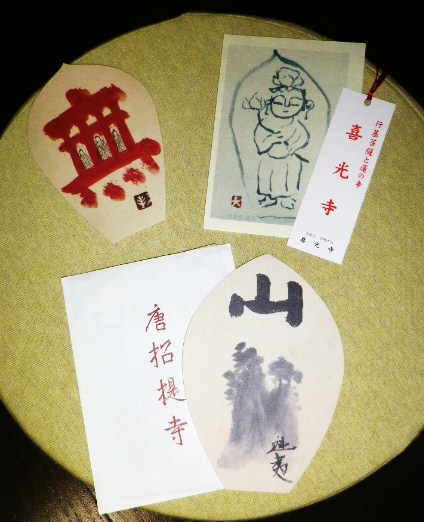 無
行基菩薩と蓮の寺
喜光寺
喜光寺
唐招提寺
山